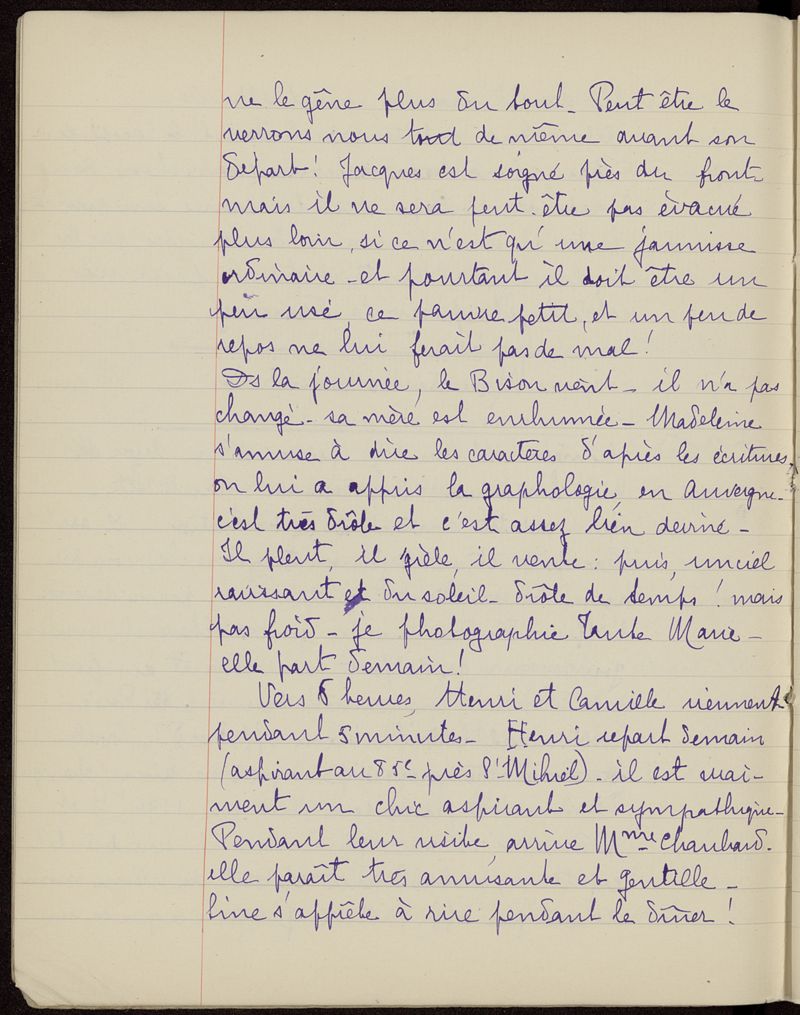 ne le gêne plus du tout. Peut être le
verrons nous tout de même avant son
départ! Jacques est soigné près du front-
mais il ne sera peut-être pas évacué
plus loin, si ce n'est qu'une jaunisse
ordinaire - et pourtant il doit être un
peu usé, ce pauvre petit, et un peu de
repos ne lui ferait pas de mal!
Ds la journée, le Bison vient - il n'a pas
changé - sa mère est enrhumée - Madeleine
s'amuse à dire les caractères d'après les écritures,
on lui a appris la graphologie, en Auvergne -
c'est très drôle et c'est assez bien deviné -
Il pleut, il gèle, il vente : puis, un ciel
ravissant et du soleil - drôle de temps! mais
pas froid - je photographie Tante Marie -
elle part demain!
Vers 5 heures, Henri et Camille viennent
pendant 5 minutes - Henri repart demain
(aspirant au 85e près St Mihiel) - il est vrai-
ment un chic aspirant et sympathique -
Pendant leur visite, arrive Mme Chaubard.
elle paraît très amusante et gentille -
Line s'apprête à rire pendant le dîner!